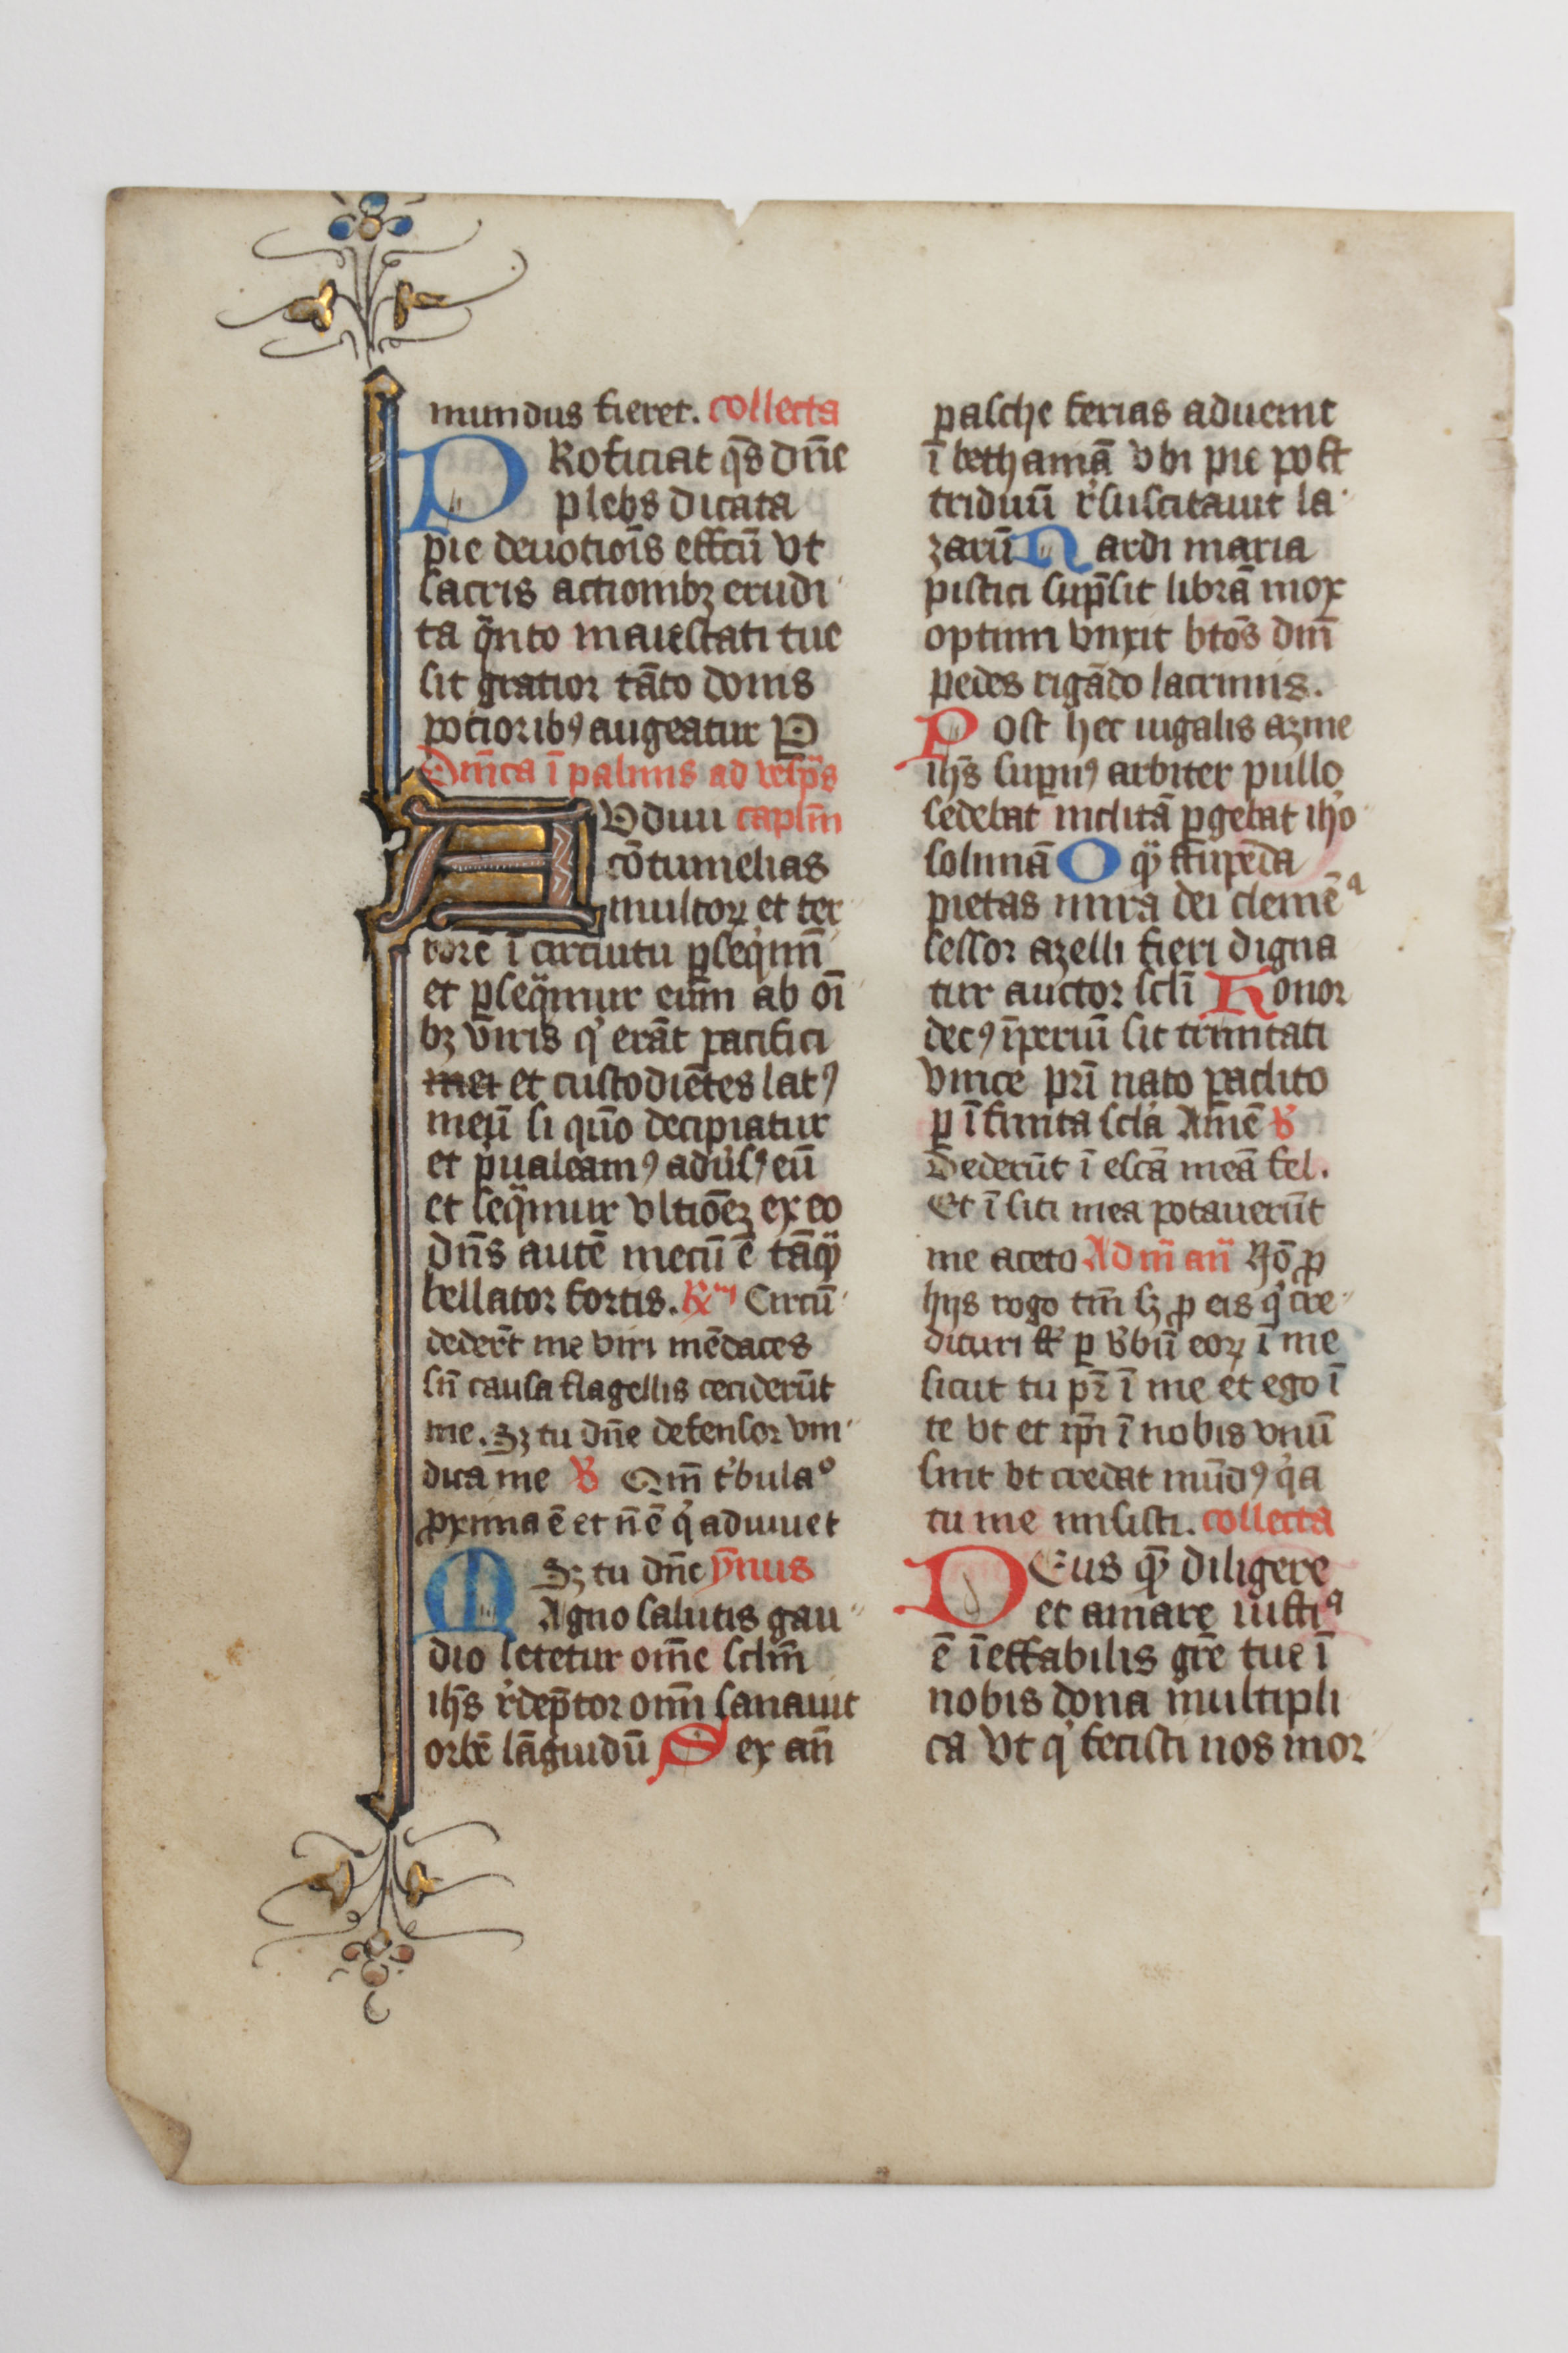 mundus fieret. collecta
PRoficiat q̄s dn̄e
plebs dicata
pie deuotiōis effc̄ū vt
sacris actionibꝫ erudi
ta q̈nto maiestati tue
sit gratior tāto donis
pociorib⁹ augeatur P
Dn̄ica ī palmis ad vesp̄s
AVdiui capl̄m
cōtumelias
multoꝝ et ter
rorē ī circuitu ꝑseq̇mī
et ꝑseq̈mur eum̄ ab oī
bꝫ viris q' erāt pacifici
mei et custodiētes lat⁹
meū si quō decipiatur
et p̄ualeam⁹ adūs⁹ eū
et seq̈mur vltiōeꝫ ex eo
dn̄s autē mecū ē tāqꝫ̄
bellator fortis. R᷒m Circū
dederūt me viri mēdaces
sn̄ causa flagellis ceciderūt
me. Sꝫ tu dn̄e defensor vin
dica me V Qm̄ t'bulaº
ꝓxima ē et n̄ ē q̇ adiuuet
Sꝫ tu dn̄e ȳnus
MAgno salutis gau
dio letetur om̄e sclm̄
ih̄s r'dēptor om̄ sanauit
orbē lāguidū Sex an̄
pasche ferias aduenit
ī bethaniā vbi pie post
triduū r'suscitauit la
zarū Nardi maria
pistici sūp̄sit librā mox
optimi vnxit btōs dn̄i
pedes rigādo lacrimis.
Post hec iugalis azine
ih̄s supn⁹ arbiter pullo
sedebat inclitā ꝑgebat ih'o
solimā O qꝫ̄ stupēda
pietas mira dei clemēᵃ
sessor azelli fieri digna
tur auctor scl̄i Honor
dec⁹ īperiū sit trinitati
vnice pr̄i nato paclito
ꝑ īfinita scla Amē V
Dederūt ī escā meā fel.
Et ī siti mea potauerūt
me aceto Ad m̄ an̄ Nō ꝓ
hijs rogo tm̄ sꝫ ꝓ eis q' cre
dituri st̄ ꝑ v̄bū eoꝝ ī me
sicut tu pr̄ ī me et ego ī
te vt et ip̄i ī nobis vnū
sint vt credat mūd⁹ q̇a
tu me misisti. collecta
DEus qꝫ̄ diligere
et amare iustiᵃ
ē īeffabilis gr̄e tue ī
nobis dona multipli
ca vt q' fecisti nos mor